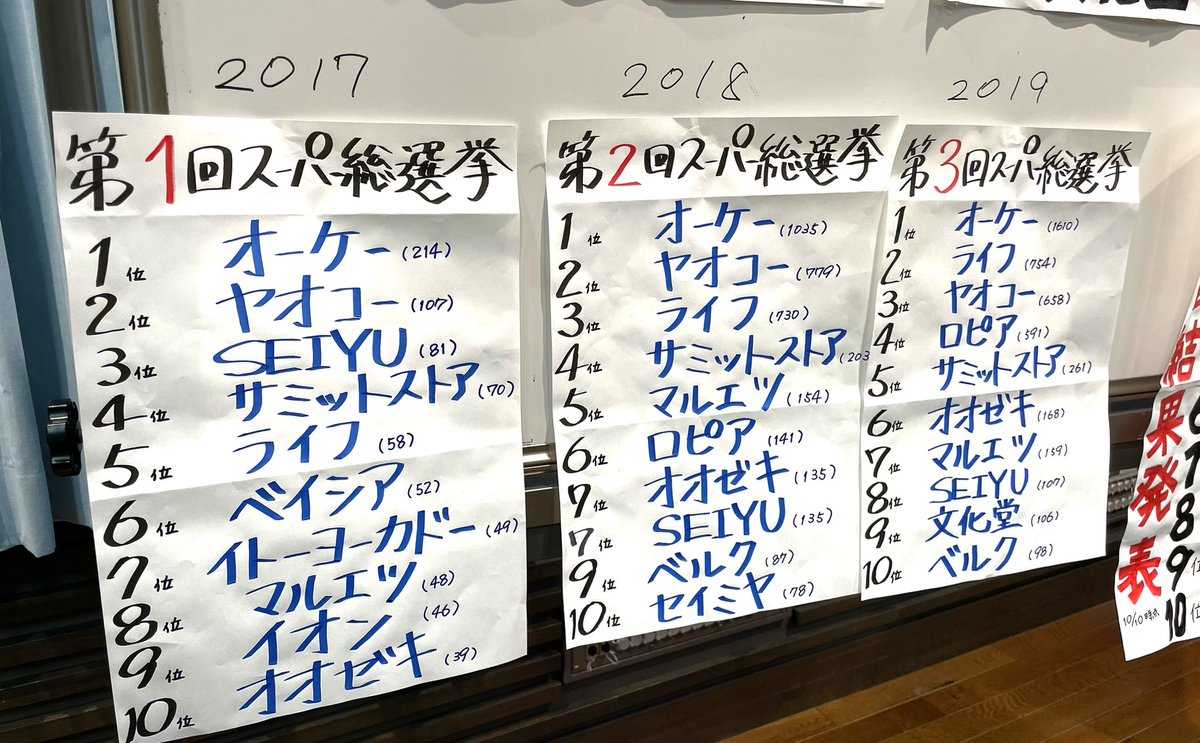 2017
第1回スーパー総選挙
1位 オーケー(214)
2位 ヤオコー(107)
3位 SEIYU(81)
4位 サミットストア(70)
5位 ライフ(58)
6位 ベイシア(52)
7位 イトーヨーカドー(49)
8位 マルエツ(48)
9位 イオン(46)
10位 オオゼキ(39)
2018
第2回スーパー総選挙
1位 オーケー(1035)
2位 ヤオコー(779)
3位 ライフ(730)
4位 サミットストア(203
5位 マルエツ(154)
6位 ロピア(141)
7位 オオゼキ(135)
7位 SEIYU(135)
9位 ベルク(87)
10位 セイミヤ(78)
2019
第3回スーパー総選挙
1位 オーケー(1610)
2位 ライフ(754)
3位 ヤオコー(658)
4位 ロピア(591)
5位 サミットストア(261)
6位 オオゼキ(168)
7位 マルエツ(159)
8位 SEIYU(107)
9位 文化堂(106)
10位 ベルク(98)
結果発表
10/10時点
6
7
8
9位
10位